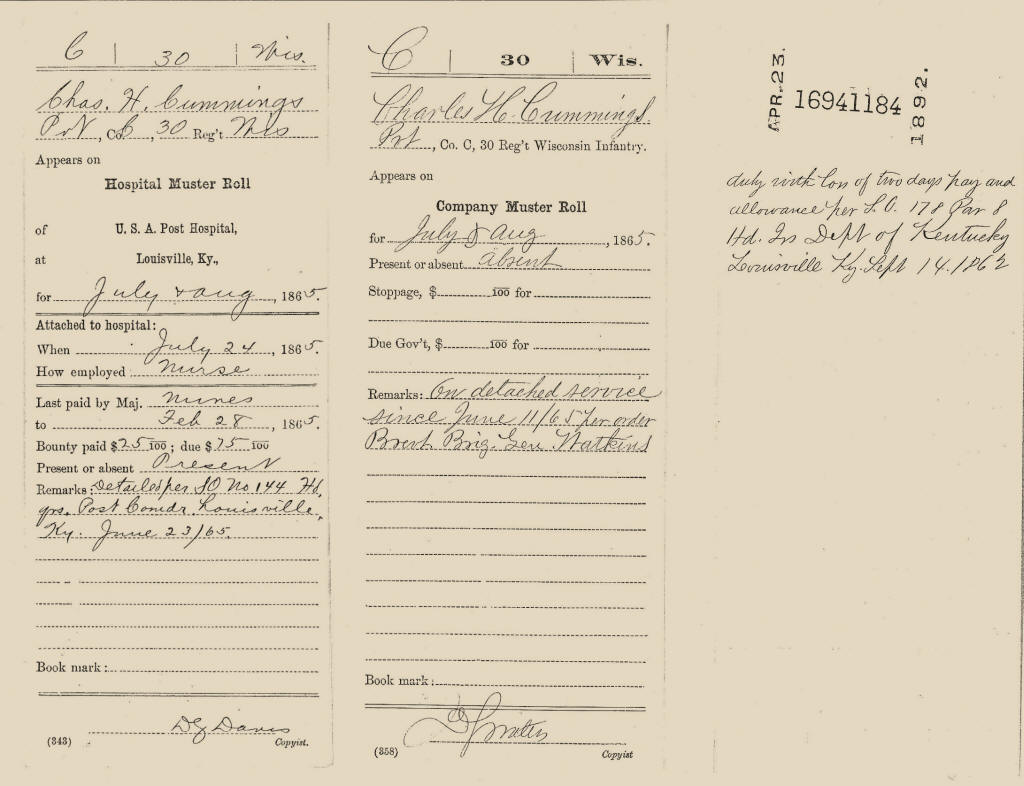 C | 30 | Wis.
Chas. H. Cummings
Pvt, Co. C, 30 Reg't Wis
Appears on
Hospital Muster Roll
of U. S. A. Post Hospital,
at Louisville, Ky.,
for July & Aug, 1865.
Attached to hospital:
When July 24, 1865.
How employed Nurse
Last paid by Maj. Nunes
to Feb 28, 1865.
Bounty paid $25 100; due $75 100
Present or absent Present
Remarks: Detailed per SO No 144 Hd.
qrs. Post Comdr. Louisville,
Ky. June 23/65.
Book mark:
D G Davis
(343) Copyist.
C | 30 | Wis.
Charles H. Cummings
Pvt, Co. C, 30 Reg't Wisconsin Infantry.
Appears on
Company Muster Roll
for July & Aug, 1865.
Present or absent absent
Stoppage, $ 100 for
Due Gov't, $ 100 for
Remarks: On detached service
since June 11/65 per order
Brevt. Brig. Gen. Watkins
Book mark:
(358) Copyist
APR. 23. 16941184 1892.
duty with loss of two days pay and
allowance per S.O. 178 Par 8
Hd. Qrs Dept of Kentucky
Louisville Ky. Sept 14. 1862